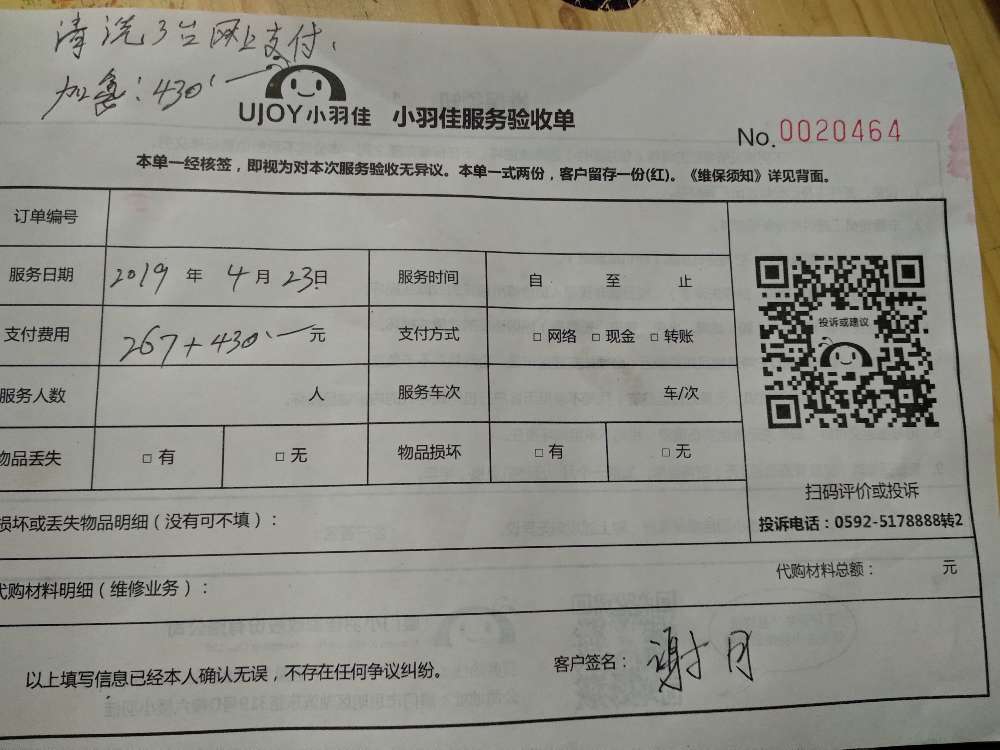 清洗3台网上支付.
加雪:430.一
UJOY小羽佳 小羽佳服务验收单
No.0020464
本单一经核签,即视为对本次服务验收无异议。本单一式两份,客户留存一份(红)。《维保须知》详见背面。
订单编号
服务日期 2019年4月23日 服务时间 自 至 止
支付费用 267+430.一元 支付方式 □ 网络 □ 现金 □ 转账
投诉或建议
服务人数 人 服务车次 车/次
物品丢失 □ 有 □ 无 物品损坏 □ 有 □ 无
扫码评价或投诉
投诉电话:0592-5178888转2
损坏或丢失物品明细(没有可不填):
代购材料明细(维修业务): 代购材料总额: 元
以上填写信息已经本人确认无误,不存在任何争议纠纷。 客户签名:谢月